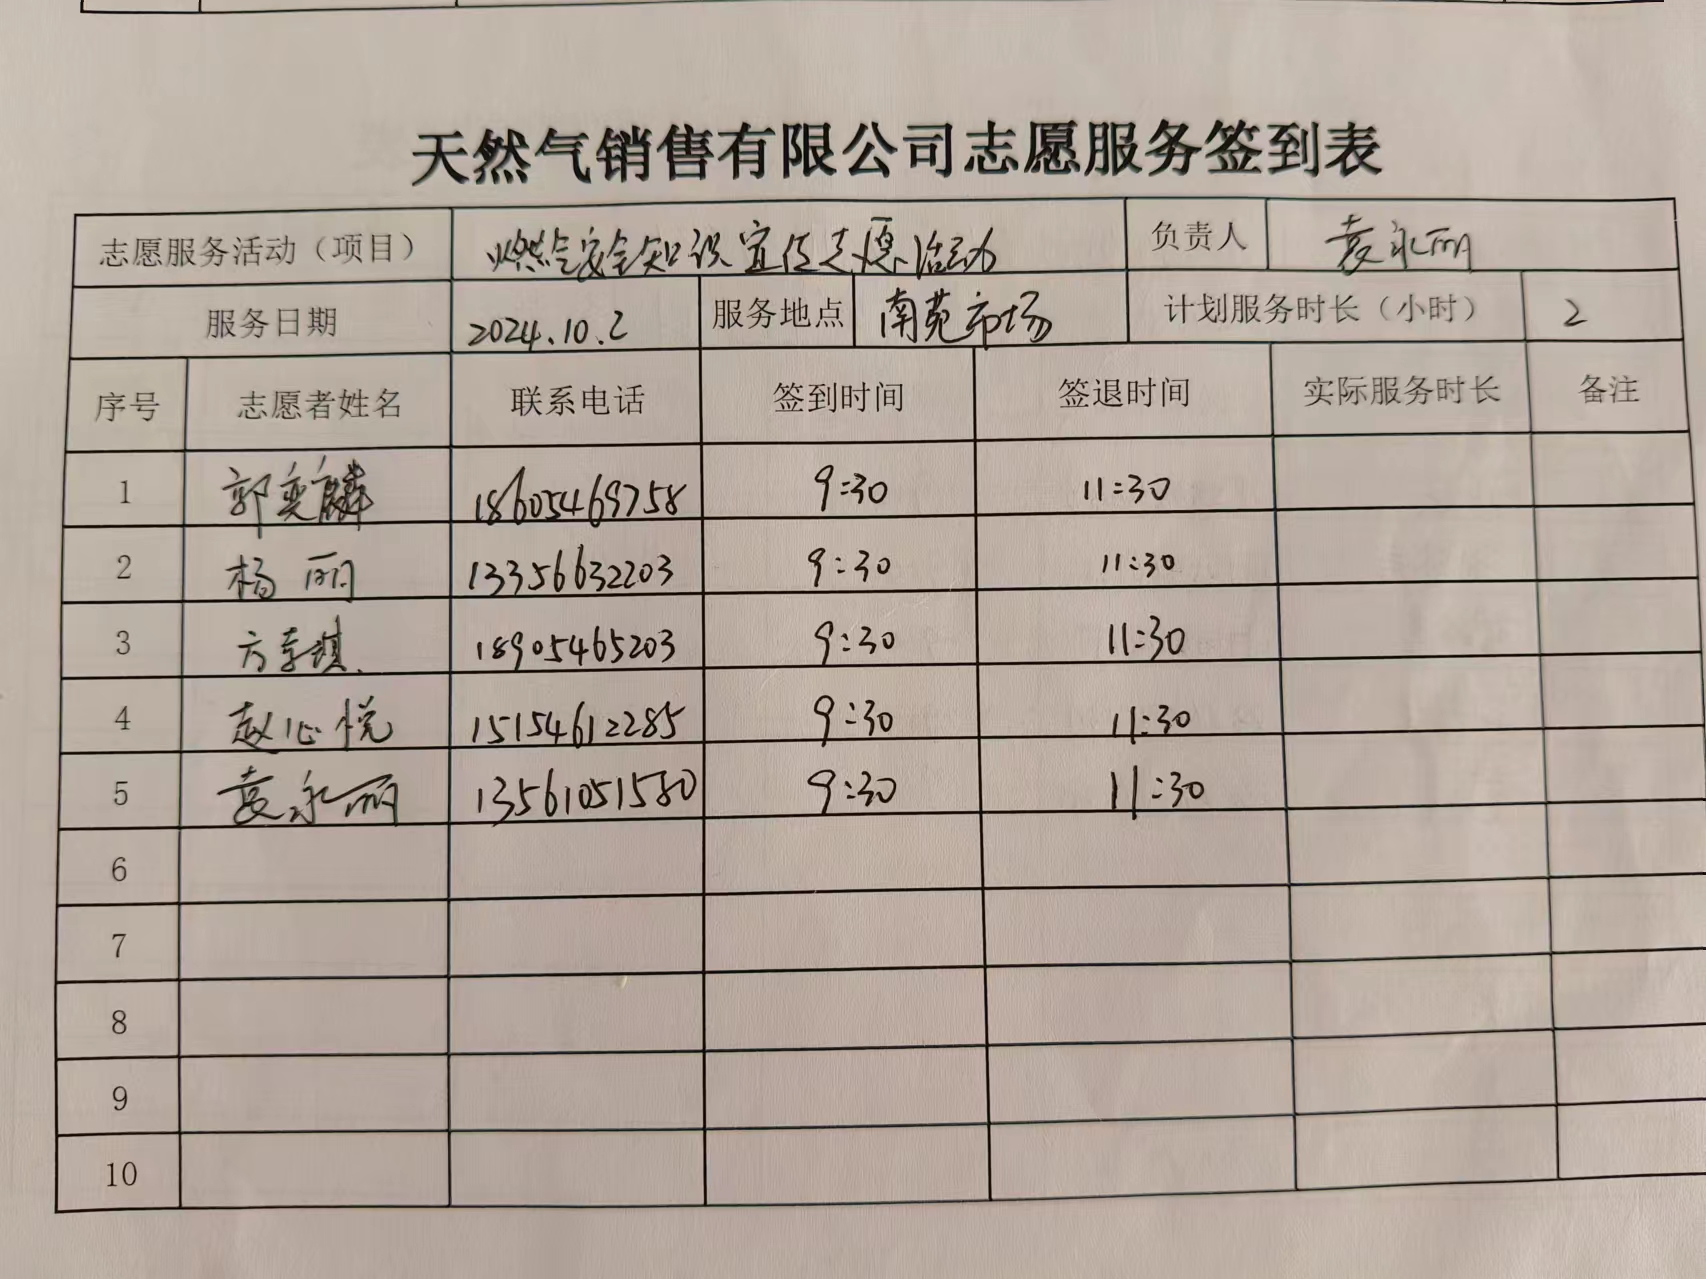 天然气销售有限公司志愿服务签到表
志愿服务活动（项目） 燃气安全知识宣传志愿活动 负责人 袁永丽
服务日期 2024.10.2 服务地点 南苑市场 计划服务时长（小时） 2
序号 志愿者姓名 联系电话 签到时间 签退时间 实际服务时长 备注
1 郭奕麟 18605469758 9:30 11:30
2 杨丽 13356632203 9:30 11:30
3 方李琪 18905465203 9:30 11:30
4 赵心悦 15154612285 9:30 11:30
5 袁永丽 13561051580 9:30 11:30
6
7
8
9
10